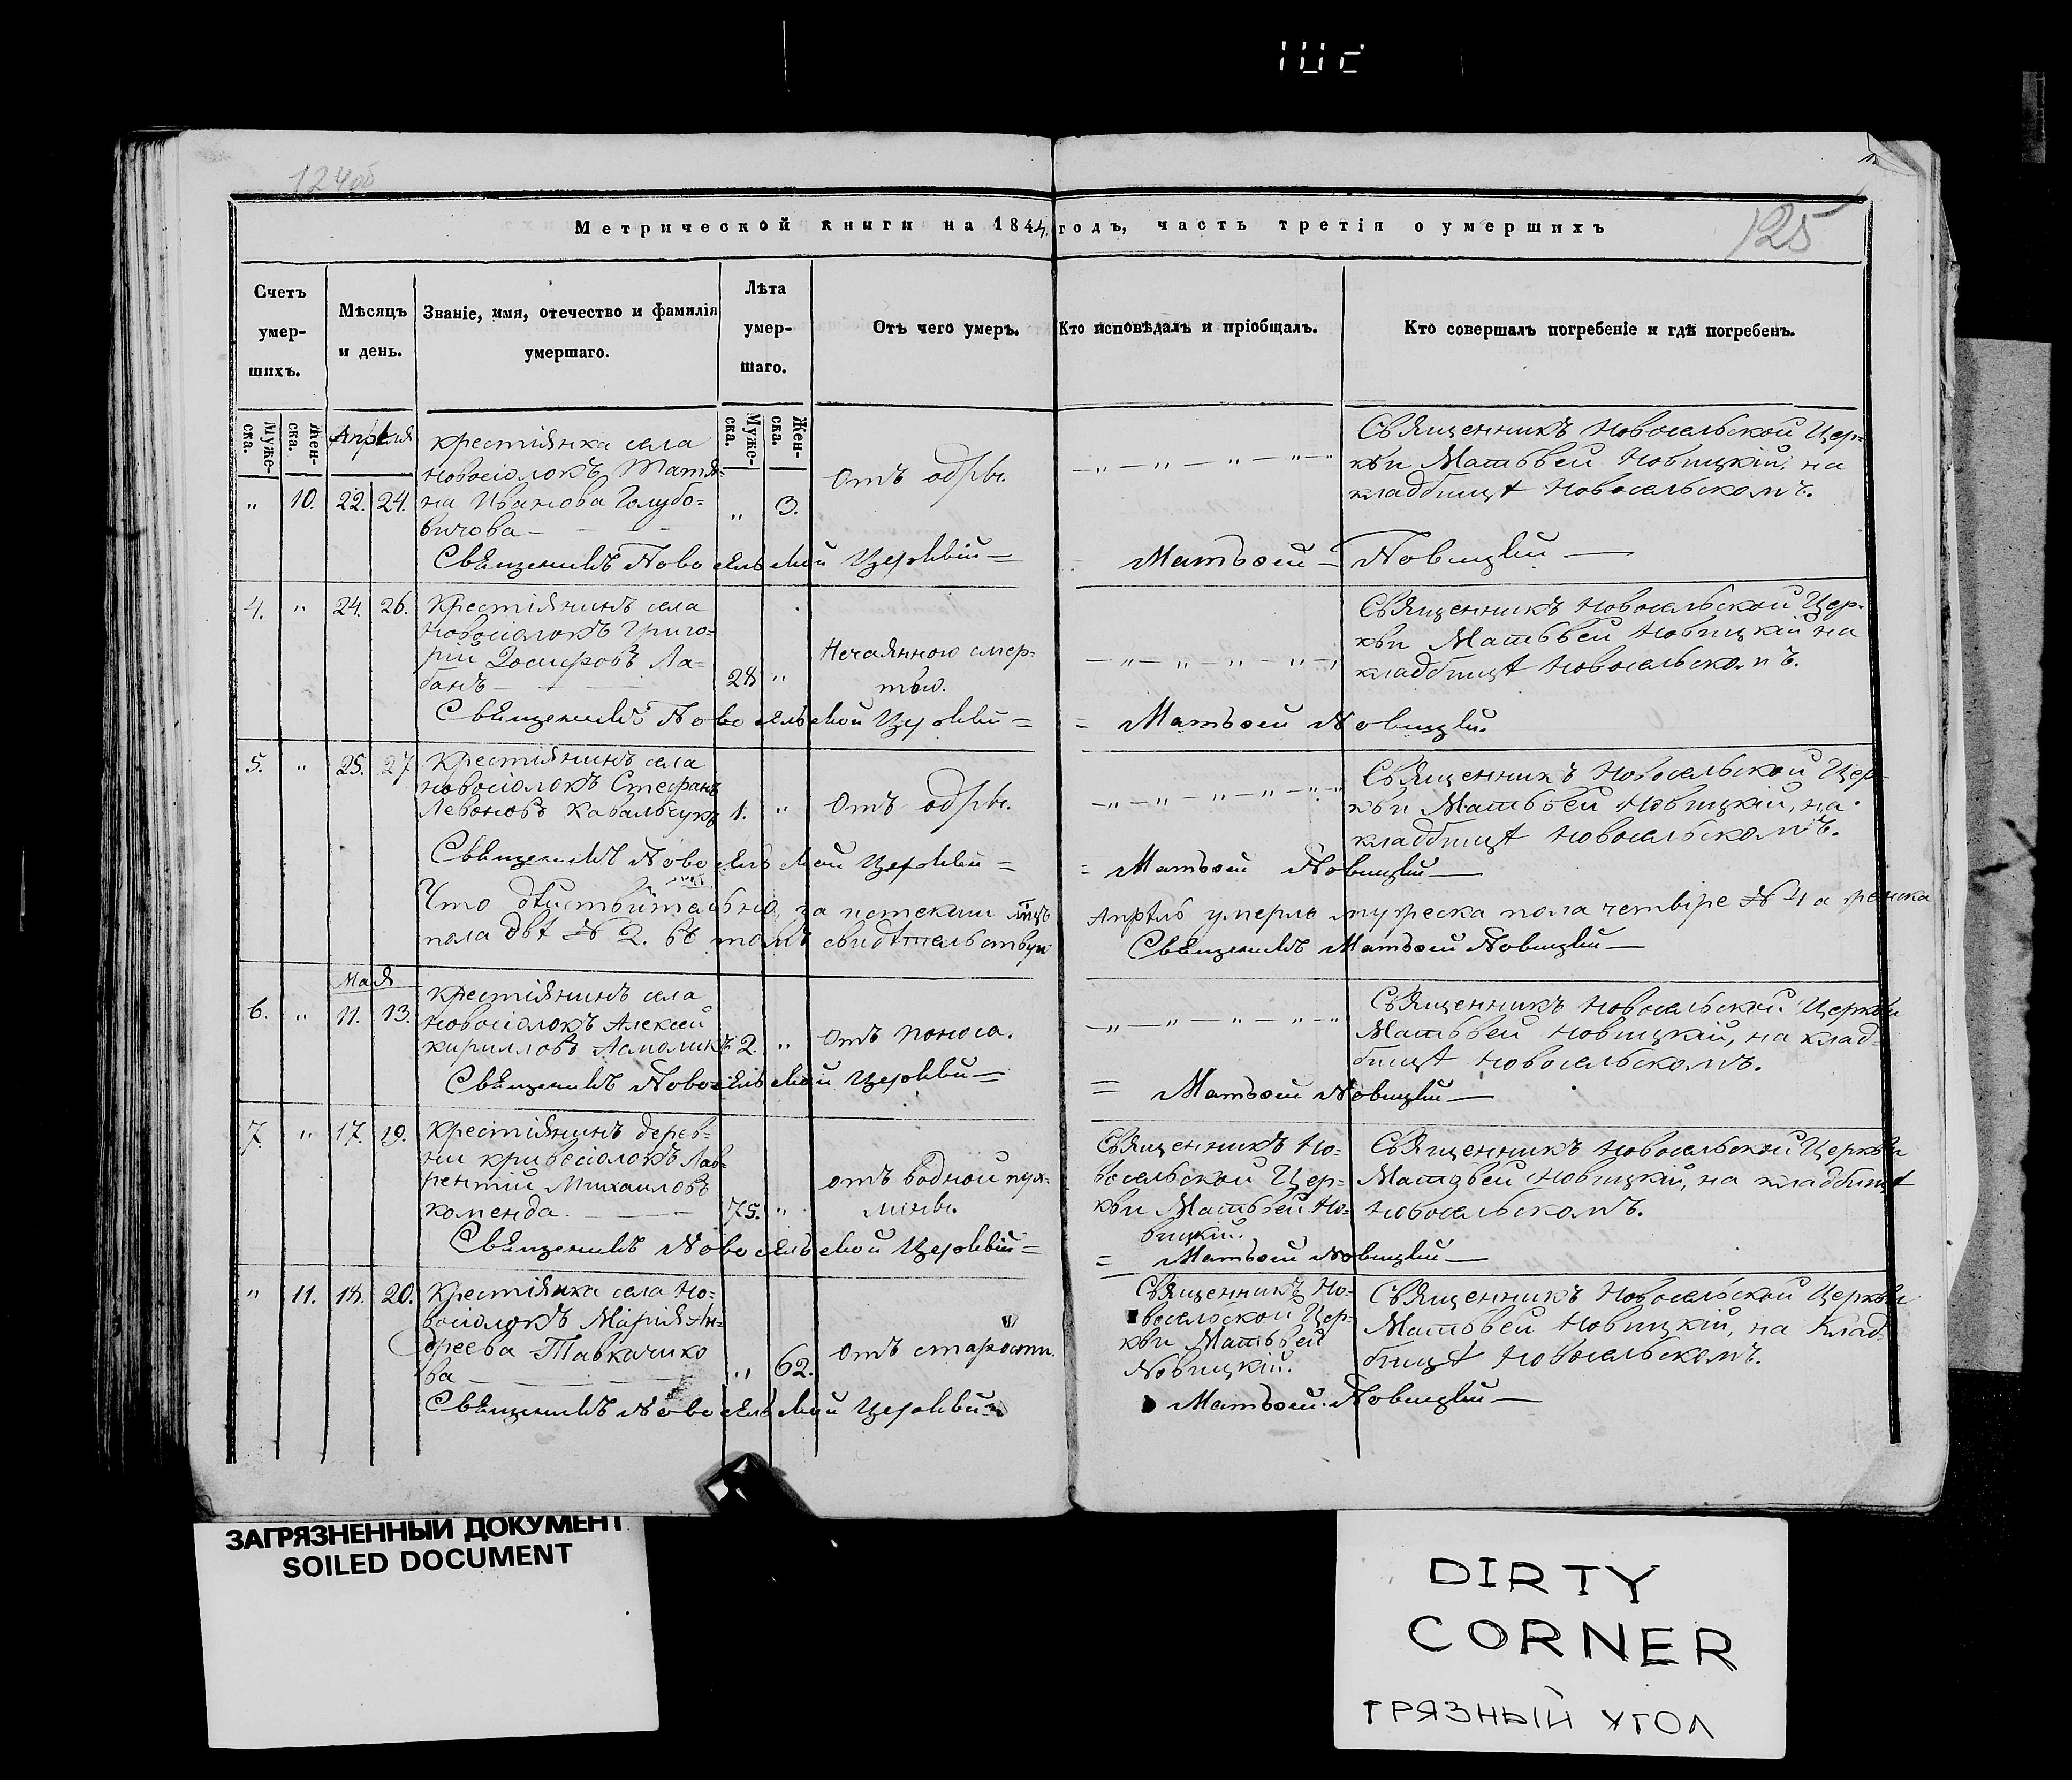 124об
125
Метрической книги на 1844 годъ, часть третія о умершихъ
Счетъ умер-шихъ.
Мѣсяцъ и день.
Званіе, имя, отечество и фамилія умершаго.
Лѣта умер-шаго.
Отъ чего умеръ.
Кто исповѣдалъ и пріобщалъ.
Кто совершалъ погребеніе и гдѣ погребенъ.
Муже-ска.
Жен-ска.
Апрѣля
Муже-ска.
Жен-ска.
" 10. 22. 24.
крестіянка села
Новосіолокъ Татя-
на Иванова Голубо-
вичова
" 3.
Отъ одры.
Священникъ Новосельской Цер-
кви Матѳвей Новицкій, на
кладбищѣ Новосельскомъ.
Священикъ Новосельской Церквій = Матѳей Новицкий
4. " 24. 26.
Крестіянинъ села
Новосіолокъ Григо-
рій Іосифовъ Ла-
банъ
28 "
Нечаянною смер-
тью.
Священникъ Новосельской Цер-
кви Матѳвей Новицкій на
кладбищѣ Новосельскомъ.
Священикъ Новосельской Церквий = = Матѳей Новицкий.
5. " 25. 27
Крестіянинъ села
Новосіолокъ Стефанъ
Левоновъ Ковальчукъ
1. "
Отъ одры.
Священникъ Новосельской Цер-
кви Матѳвей Новицкій, на
кладбищѣ Новосельскомъ.
Священикъ Новосельской Церквий = = Матѳей Новицкий
Что дѣиствительно, за истекши мцъ Апрѣль умерло мужеска пола четыре № 4 а женска
пола двѣ № 2. въ томъ свидѣтельствую Священикъ Матѳей Новицкий
Мая
6. " 11. 13.
Крестіянинъ села
Новосіолокъ Алексей
Кирилловъ
2. "
Отъ поноса.
Священникъ Новосельской Церкви
Матѳвей Новицкій, на клад-
бищѣ Новосельскомъ.
Священикъ Новосельской Церквий = = Матѳей Новицкий
7. " 17. 19.
Крестіянинъ дерев-
ни Кривосіолокъ Лав-
рентій Михаиловъ
Коменда.
75. "
отъ водной пух-
лины.
Священникъ Но-
восельской Цер-
кви Матѳвей Но-
вицкий.
Священникъ Новосельской Церкви
Матѳвей Новицкій, на кладбищѣ
Новосельскомъ.
Священикъ Новосельской Церквій = = Матѳей Новицкий
" 11. 18. 20.
Крестіянка села Но-
восіолокъ Марія Ан-
дреева Тавкачико
ва
" 62.
Отъ старости.
Священникъ Но-
восельской Цер-
кви Матѳвей
Новицкій.
Священникъ Новосельской Церкви
Матѳвей Новицкій, на клад-
бищѣ Новосельскомъ.
Священикъ Новосельской Церквий Матѳей Новицкий
ЗАГРЯЗНЕННЫЙ ДОКУМЕНТ
SOILED DOCUMENT
DIRTY
CORNER
ГРЯЗНЫЙ УГОЛ